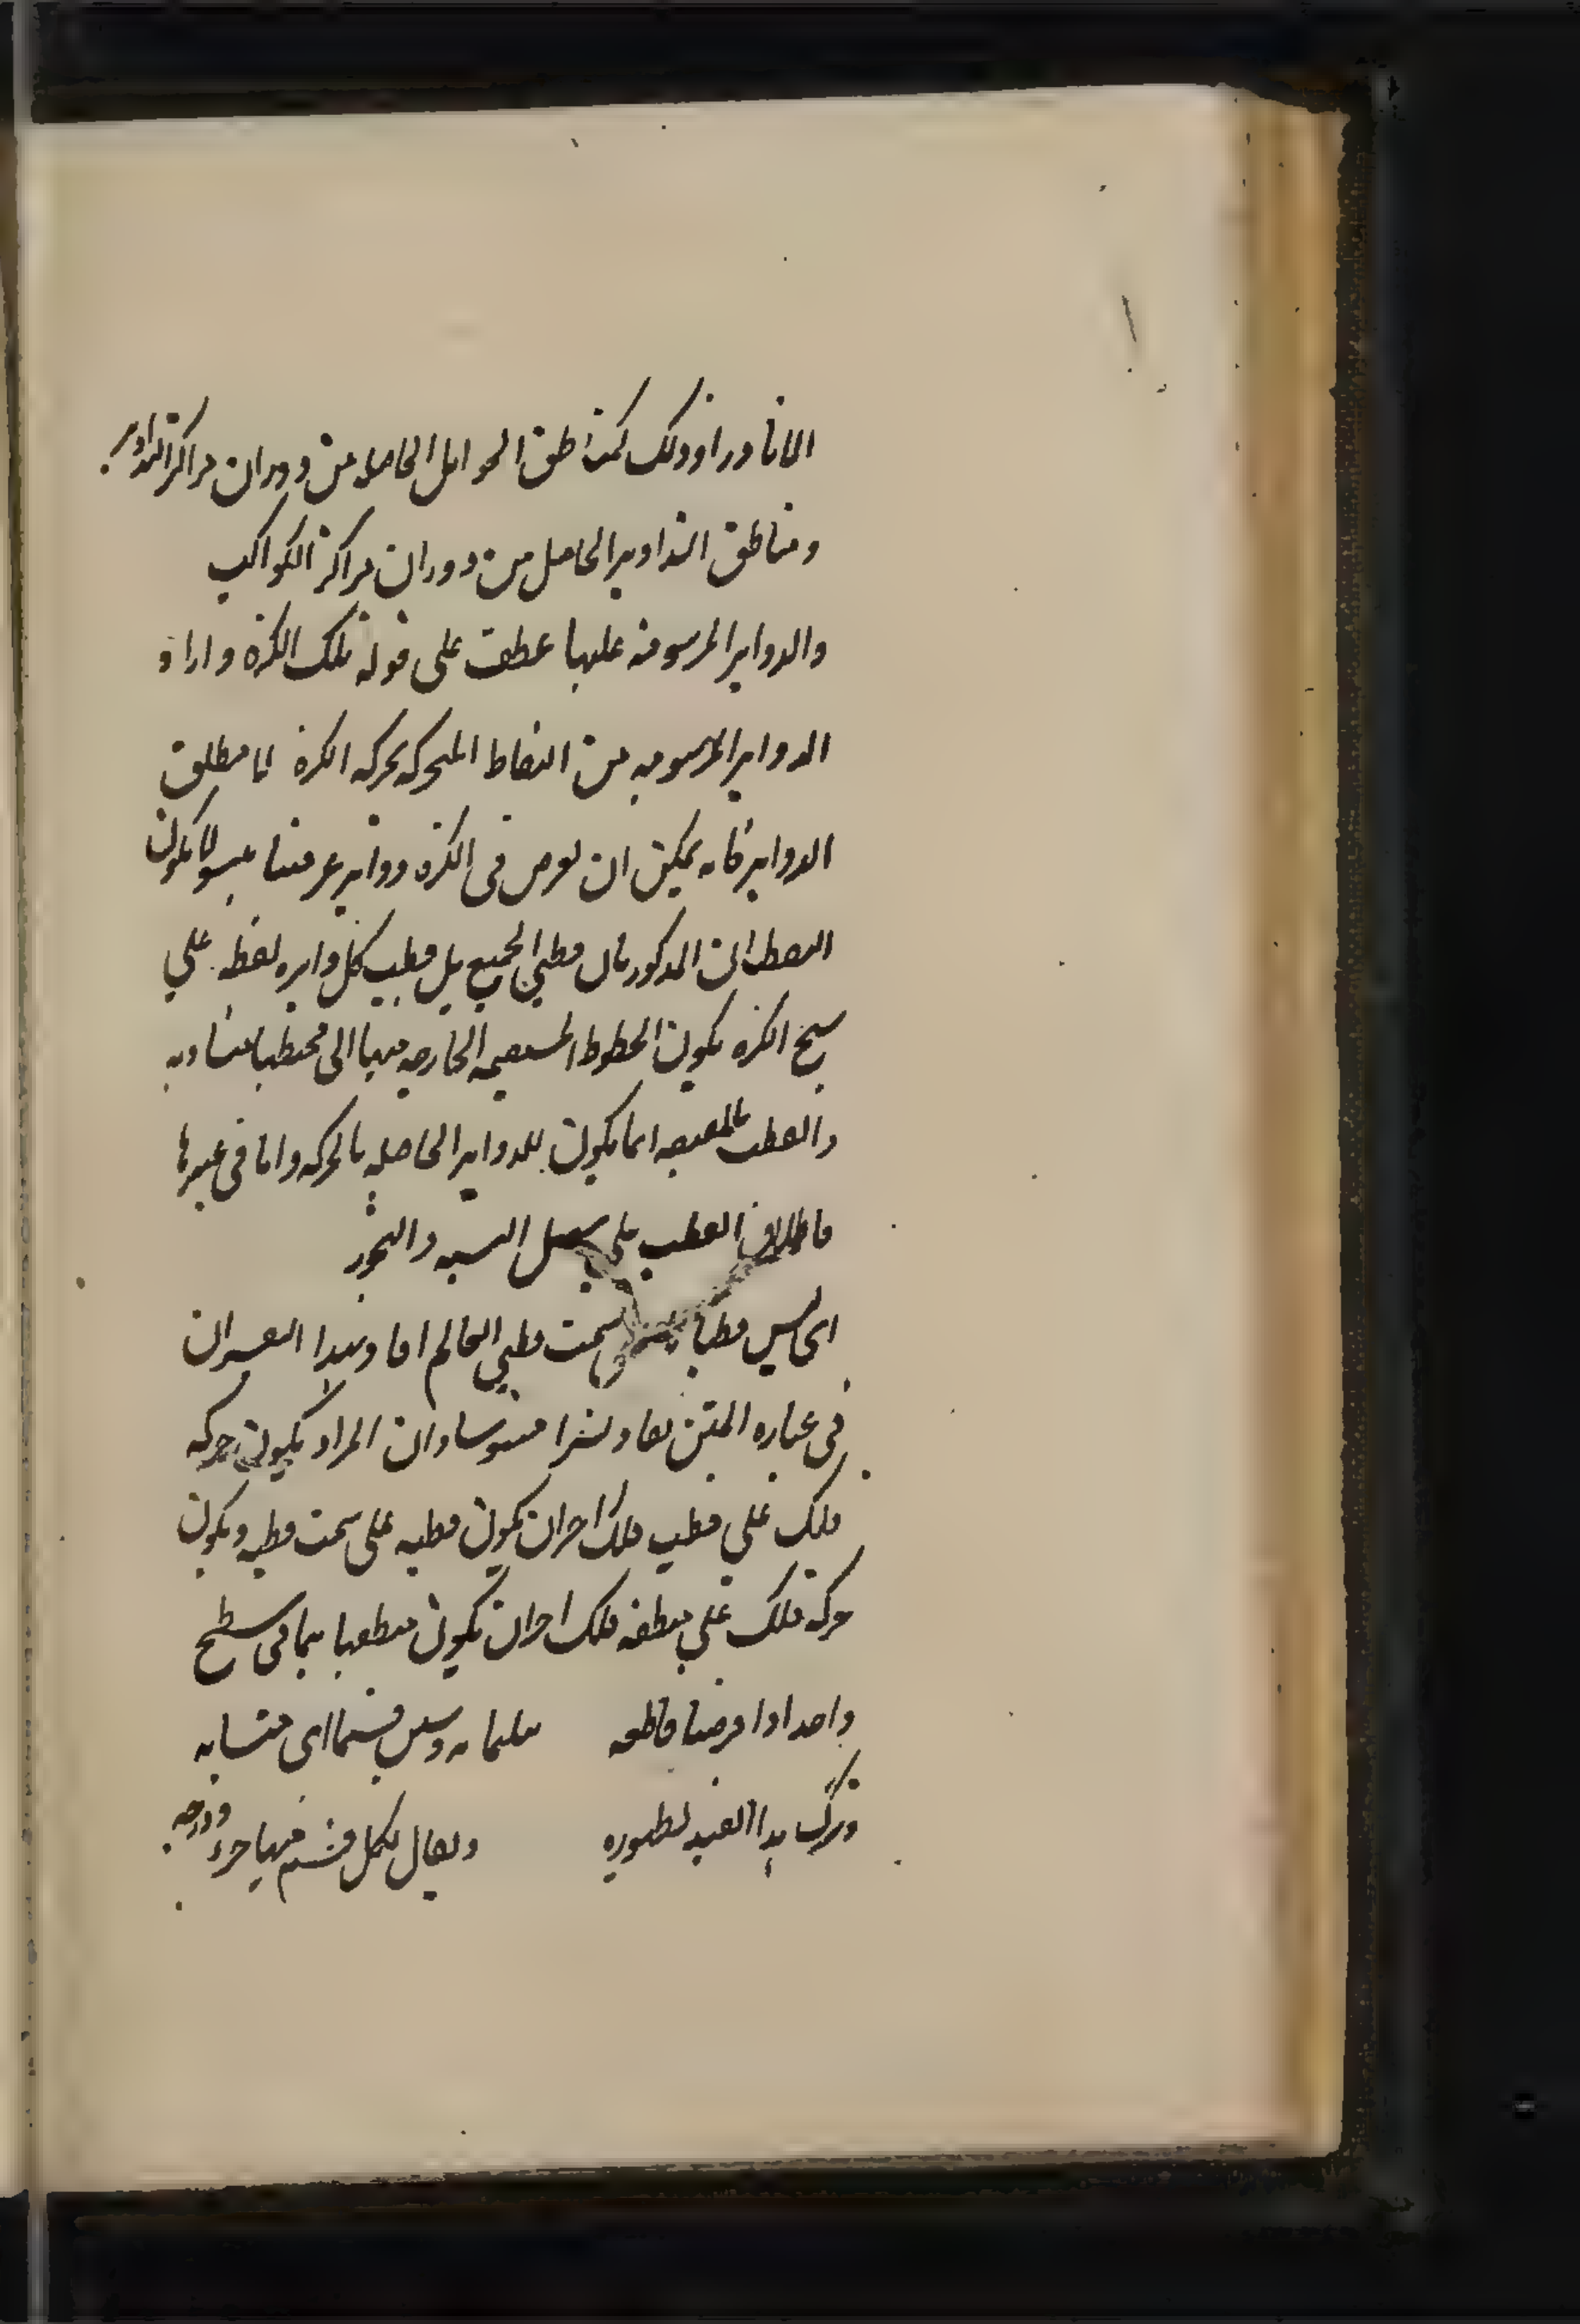 الا نادرا وذلك كمناطق الحوامل الحاصلة من دوران مراكز التداوير
ومناطق التداوير الحاصل من دوران مراكز الكواكب
والدواير المرسومة عليها عطف على قوله تلك الكرة واراد
الدواير المرسومه من النقاط المتحركه بحركه الكرة لا مطلق
الدواير فانه يمكن ان نفرض فى الكرة دواير عرضنا بحيث لا يكون
النقطتان المذكورتان قطبى الجميع بل قطب كل دايره نقطه على
سطح الكره يكون الخطوط المستقيمه الخارجه منها الى محيطها متساويه
والقطب بالحقيقه انما يكون للدواير الحاصله بالحركه واما فى غيرها
فاطلاق القطب على سبيل التشبيه والتجوز
اى ليس قطباه على سمت قطبى العالم افاد بهذا التفسير ان
فى عباره المتن لفا ونشرا مشوشا وان المراد بكون حركه
فلك على قطبى فلك اخر ان يكون قطبه على سمت قطبه وبكون
حركه فلك على منطقه فلك اخر ان يكون منطقتاهما فى سطح
واحد اذا فرضنا قاطعه ثلثمائه وستين قسما اى متشابه
وترك هذا القيد لظهوره ويقال لكل قسم منها جزء ودرجه